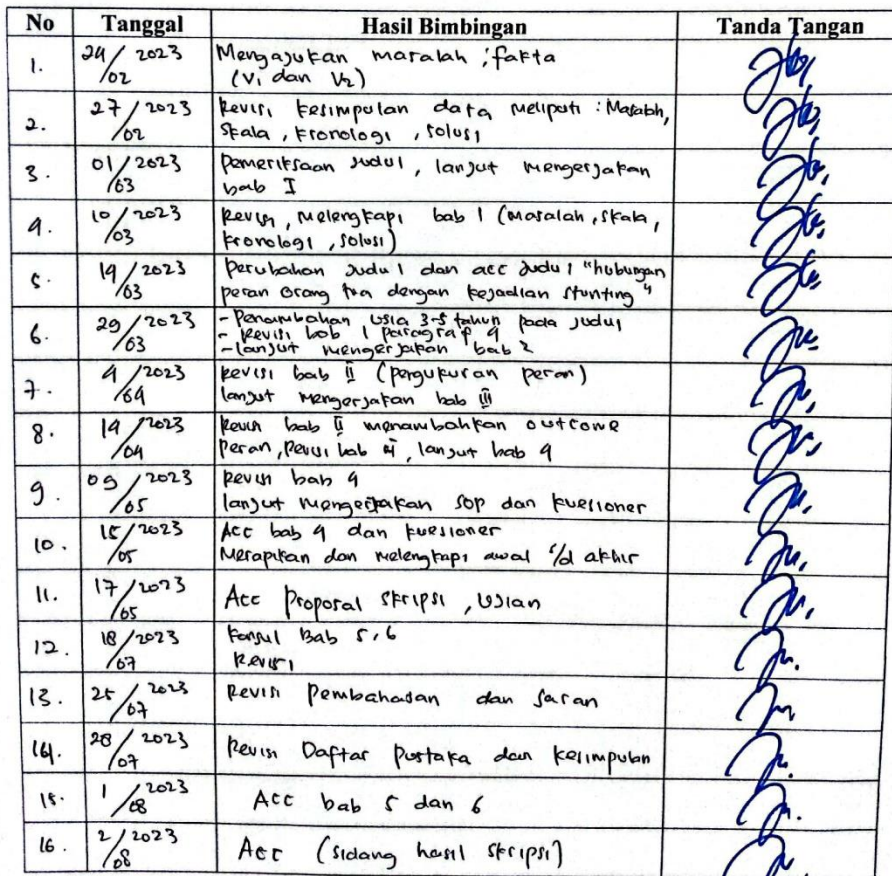 No Tanggal Hasil Bimbingan Tanda Tangan
1. 24/02 2023 Mengajukan masalah, fakta
(V1 dan V2)
2. 27/02 2023 Revisi kesimpulan data meliputi : Masalah,
skala, kronologi, solusi
3. 01/03 2023 Pemeriksaan judul, lanjut mengerjakan
bab I
4. 10/03 2023 Revisi, melengkapi bab 1 (masalah, skala,
kronologi, solusi)
5. 14/03 2023 Perubahan judul dan acc judul "hubungan
peran orang tua dengan kejadian stunting"
6. 29/03 2023 - Penambahan usia 3-5 tahun pada judul
- Revisi bab 1 paragraf 4
- lanjut mengerjakan bab 2
7. 4/04 2023 Revisi bab II (pengukuran peran)
langut mengerjakan bab III
8. 14/04 2023 Revisi bab II menambahkan outcome
peran, Revisi bab III, lanjut bab 4
9. 09/05 2023 Revisi bab 4
lanjut mengerjakan SOP dan kuesioner
10. 15/05 2023 Acc bab 4 dan kuesioner
Merapikan dan melengkapi awal s/d akhir
11. 17/05 2023 Acc Proposal skripsi, ujian
12. 18/07 2023 Konsul Bab 5, 6
Revisi
13. 25/07 2023 Revisi Pembahasan dan Saran
14. 28/07 2023 Revisi Daftar Pustaka dan Kesimpulan
15. 1/08 2023 Acc bab 5 dan 6
16. 2/08 2023 Acc (sidang hasil skripsi)